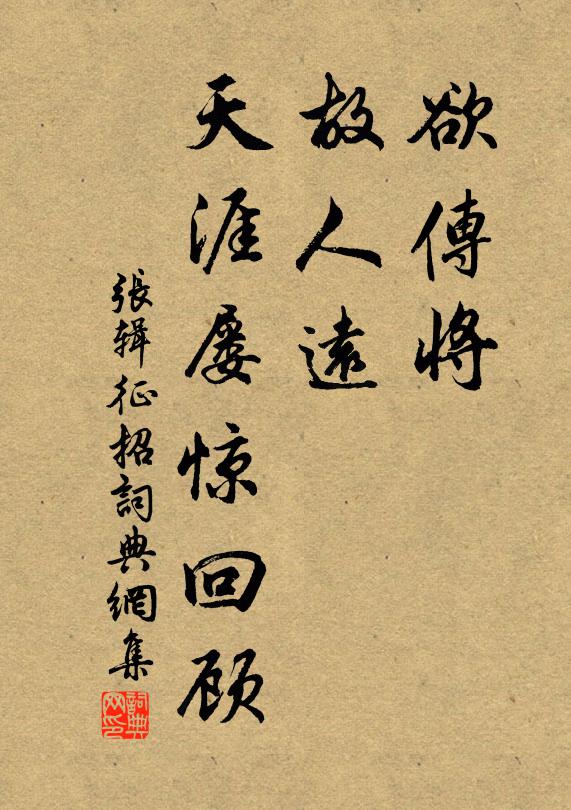 欲傳將
故人遠
天涯屡惊回顾
張辑征招詞典網集
詞典网印